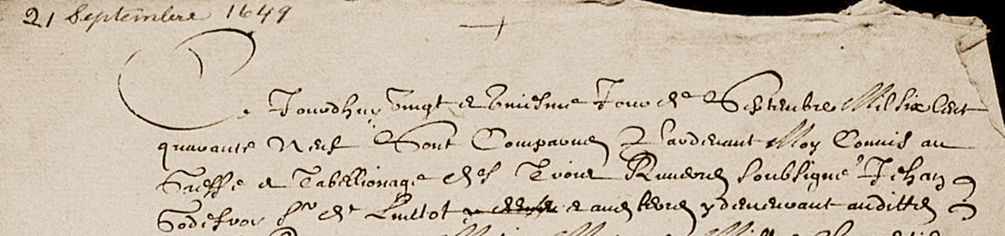 21 Septembre 1649
Ce Jourdhuy Vingt et Vniesme Jour de Septembre Mil six Cent
quarante Neuf Sont Comparus Pardevant Moy Commis au
Greffe et Tabellionage des Trois Rivieres soubsigné Jehan
Godefroy Sr de Lintot et aues demeurant auditte